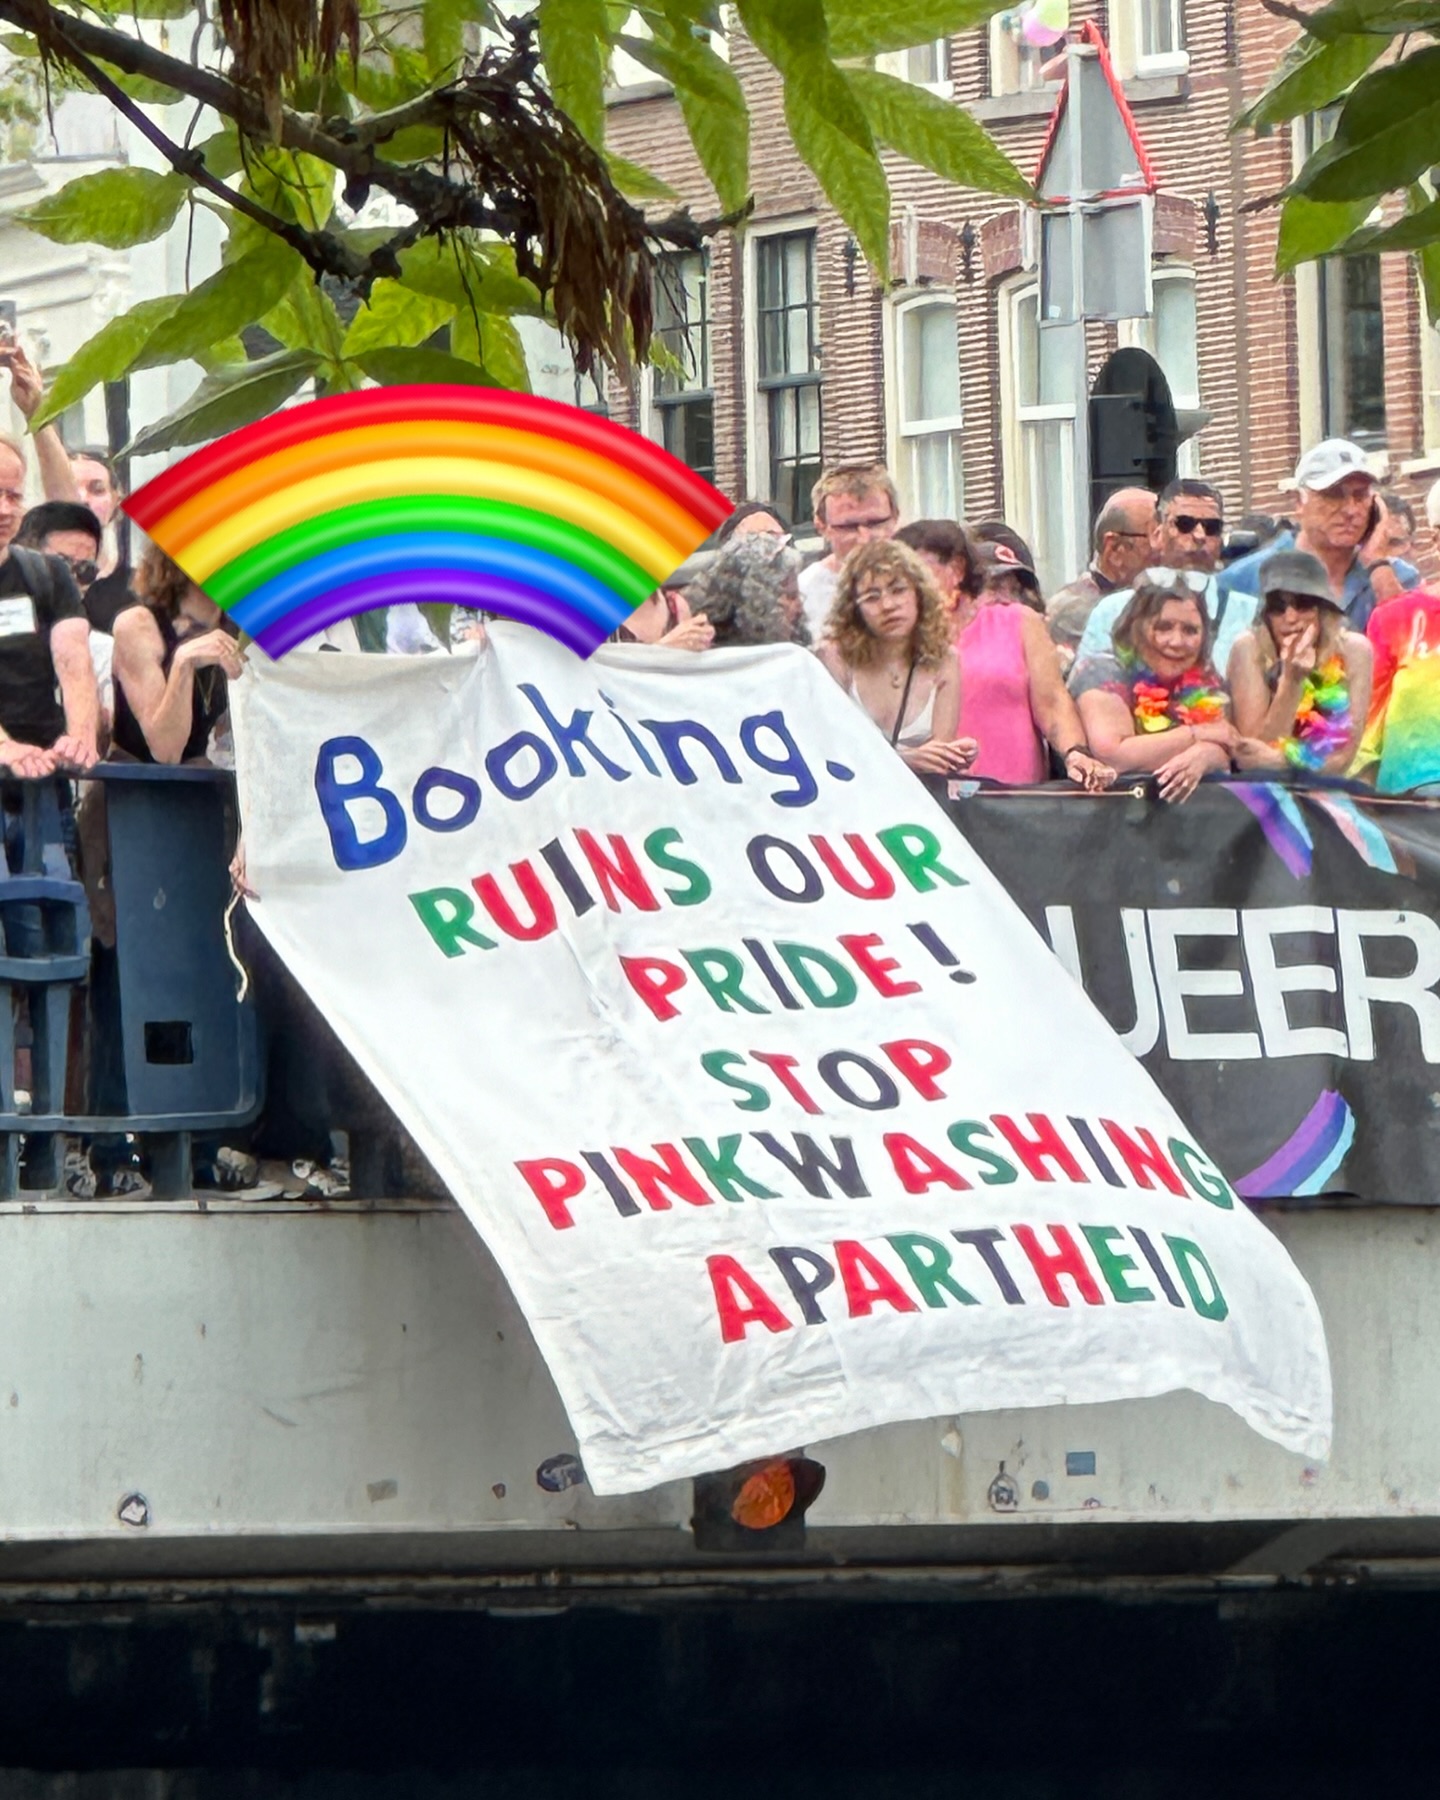 Booking.
RUINS OUR
PRIDE!
STOP
PINKWASHING
APARTHEID
UEER